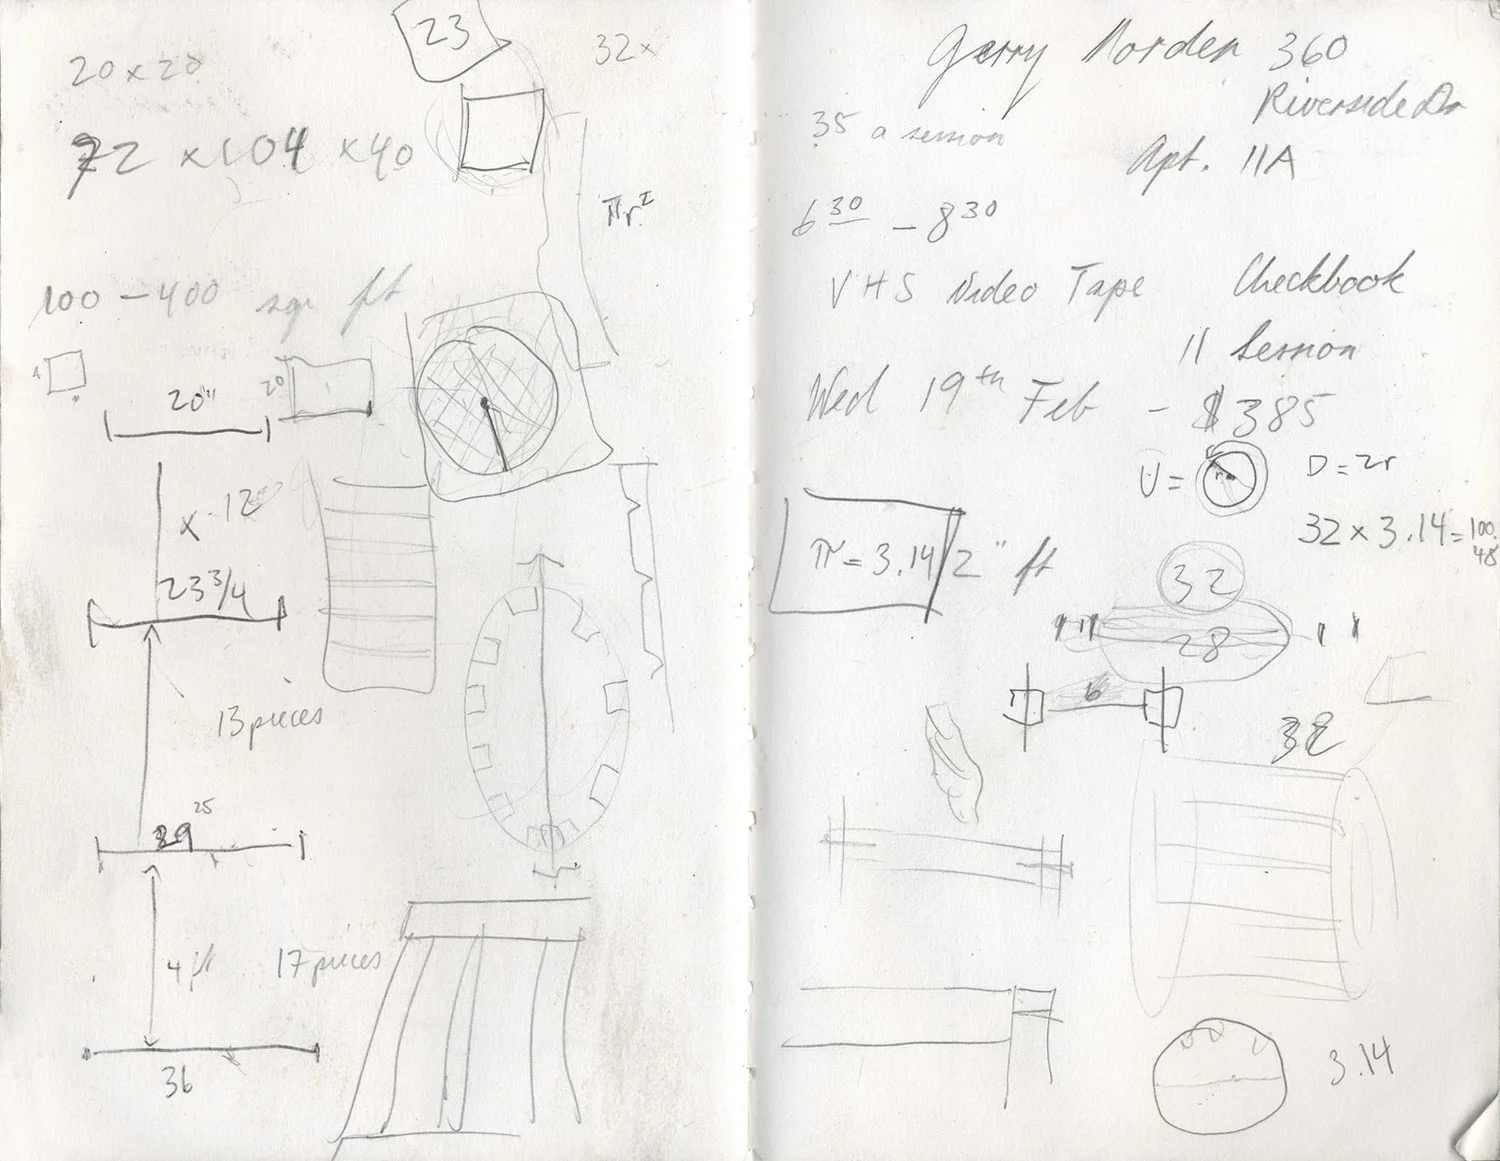 23
32x
20 x 20
72 x 104 x 40
πr²
100 - 400 sqr ft
20"
20
x -12
23 3/4
13 pieces
25
17 pieces
36
Gerry
360
Riverside Dr
35 a session
Apt. 11A
6 30 - 8 30
VHS Video Tape Checkbook
11 Session
Wed 19th Feb - $385
U =
r
D = 2r
32 x 3.14 = 100.48
π = 3.14
2" ft
32
28
6
3.14